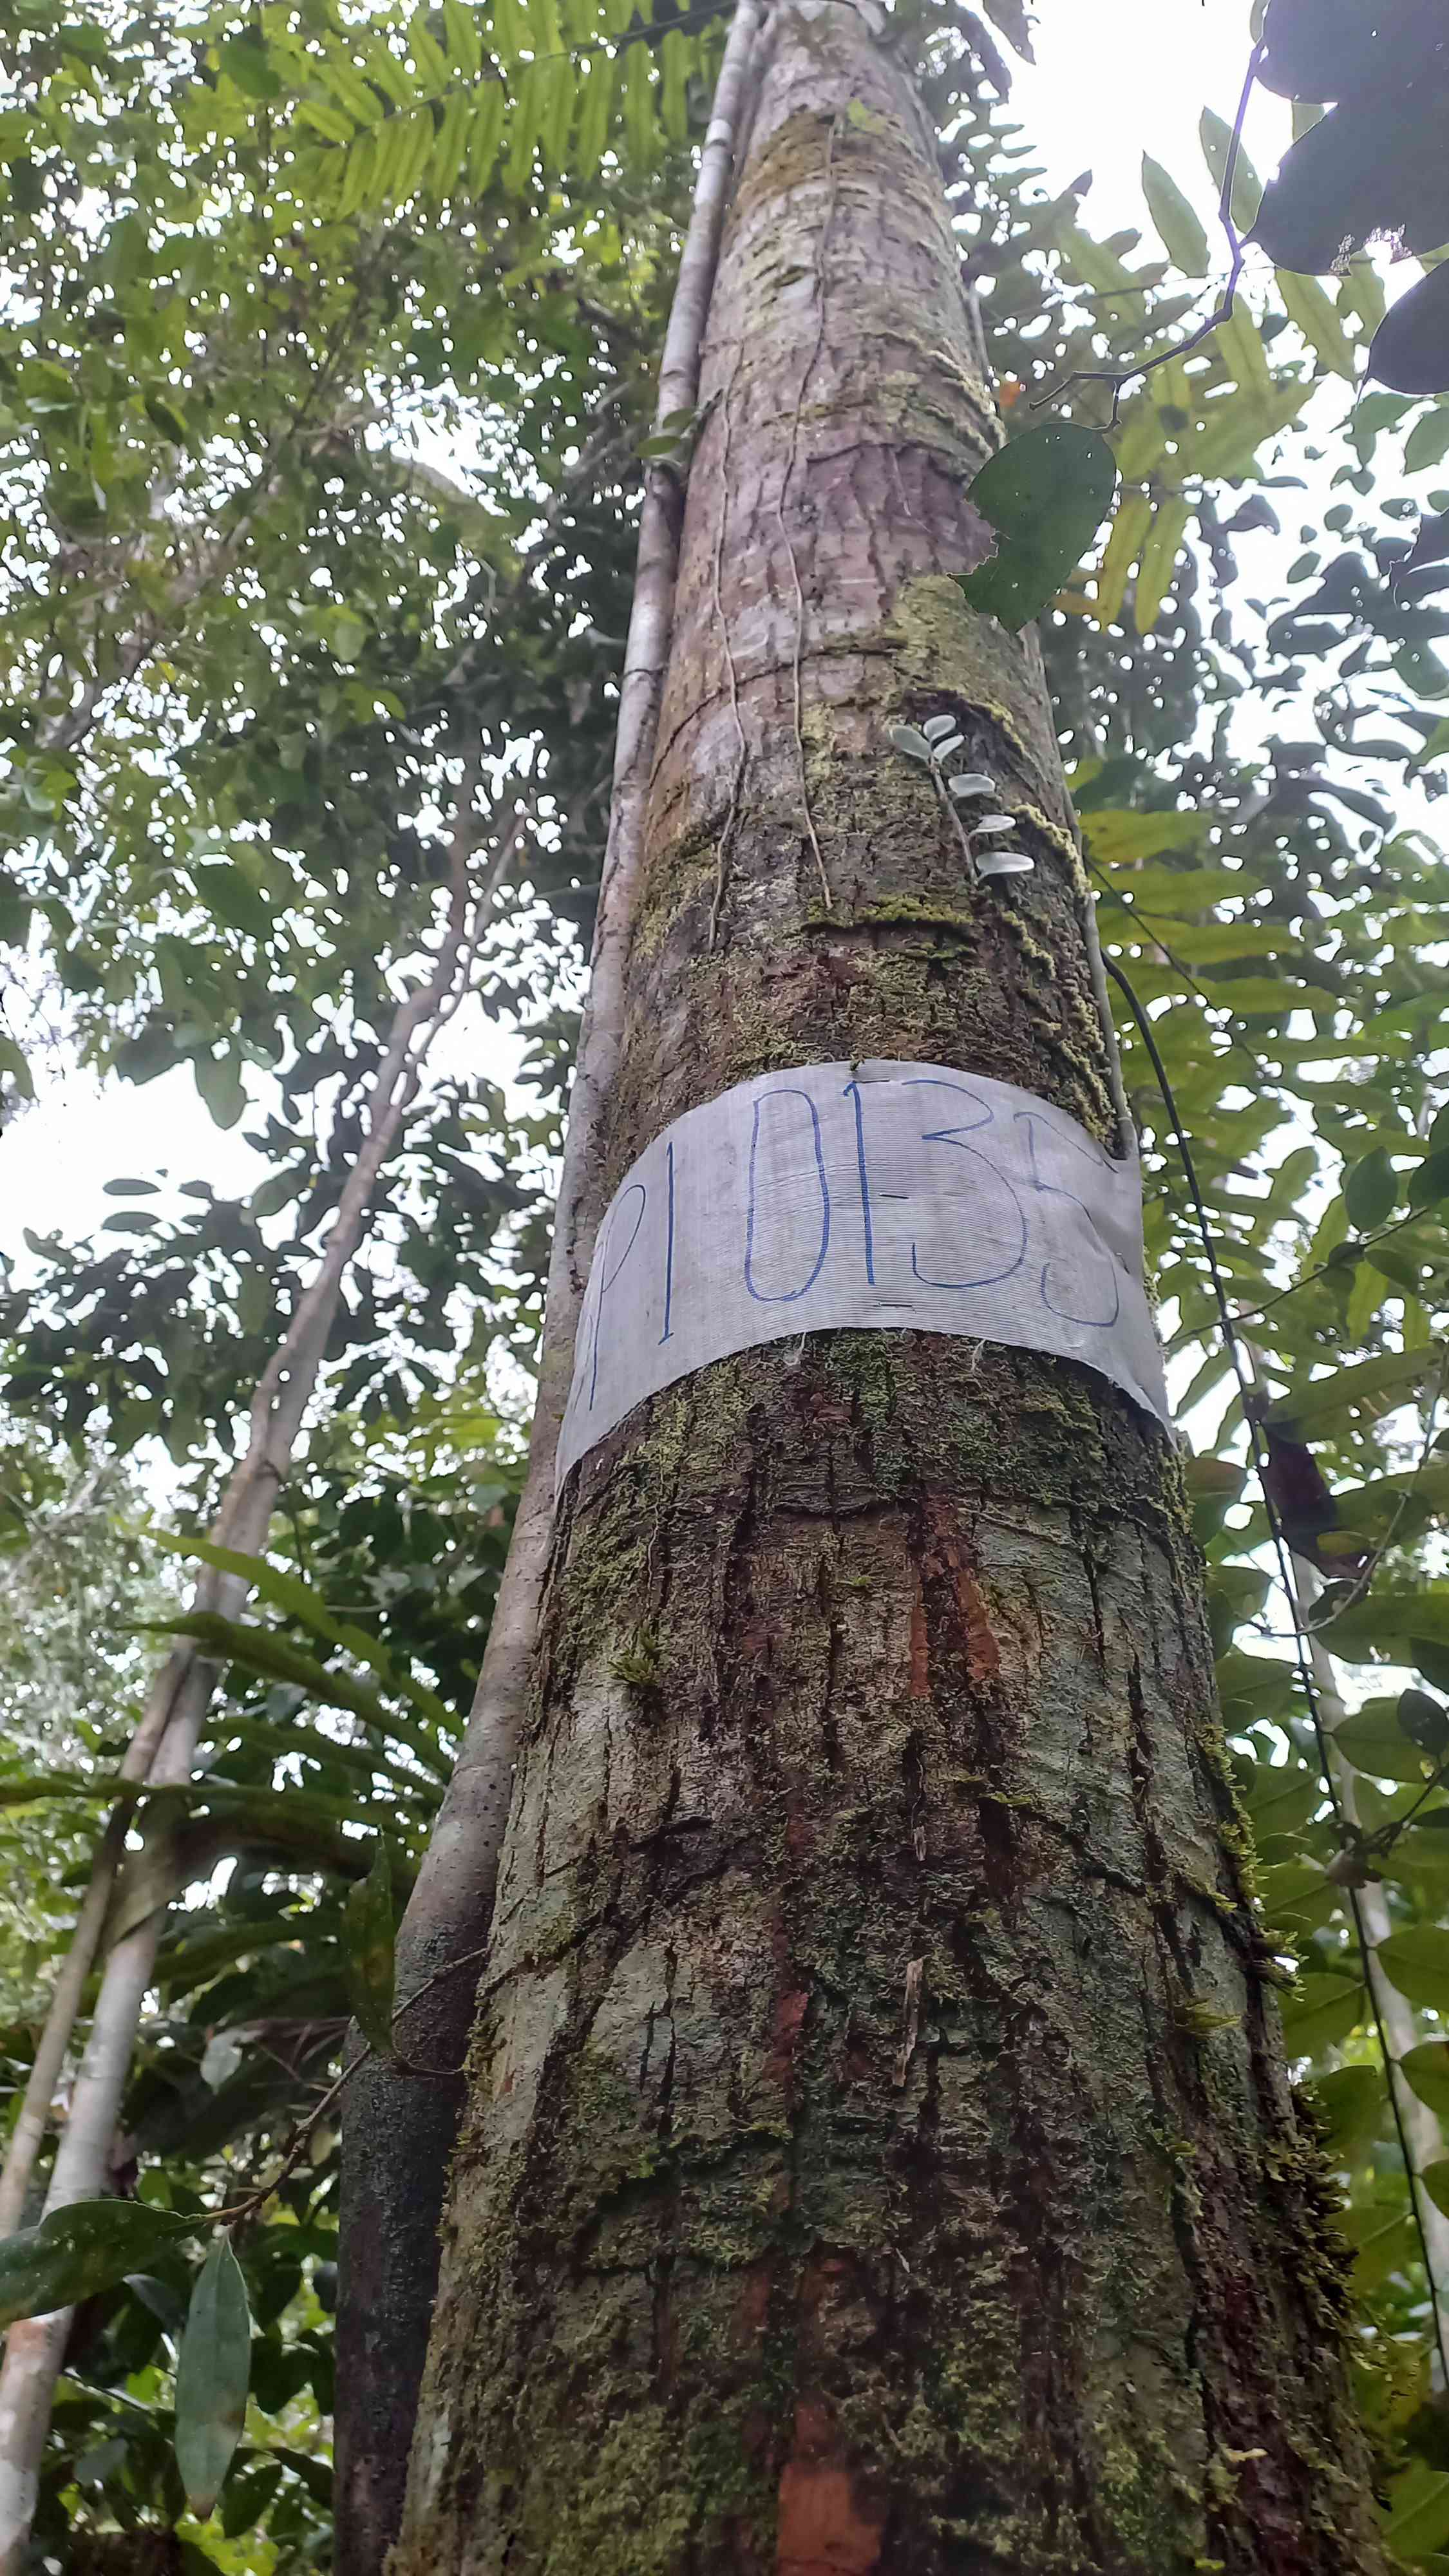 P1 0135